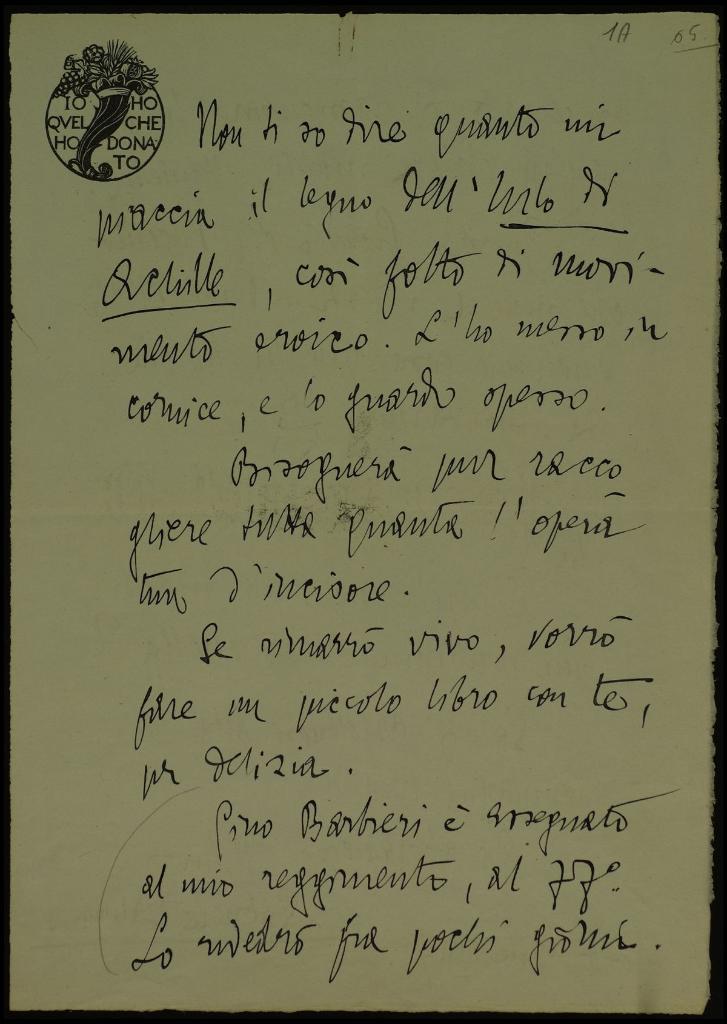 1A 65
IO HO
QVEL CHE
HO DONA
TO
Non ti so dire quanto mi
piaccia il legno dell'Urlo di
Achille, così folto di movi-
mento eroico. L'ho messo in
cornice, e lo guardo spesso.
Bisognerà pur racco
gliere tutta quanta l'opera
tua d'incisore.
Se rimarrò vivo, vorrò
fare un piccolo libro con te,
per delizia.
Gino Barbieri è assegnato
al mio reggimento, al 77º.
Lo rivedrò fra pochi giorni.